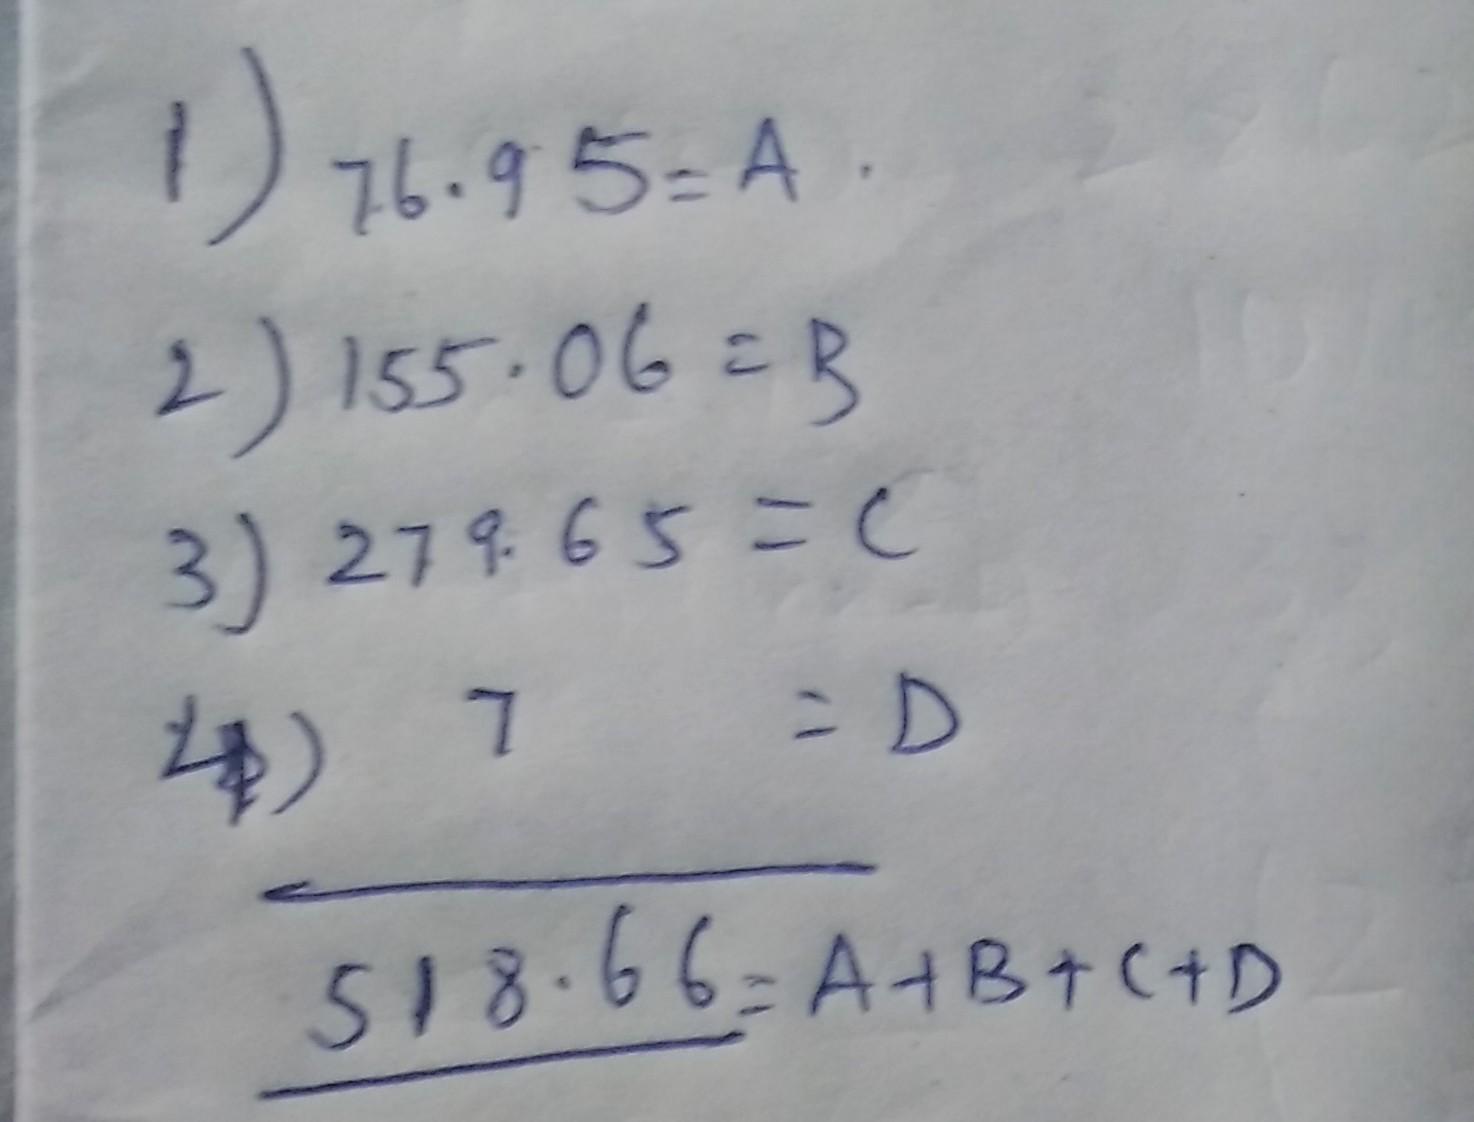 1) 76.95 = A.
2) 155.06 = B
3) 279.65 = C
4) 7 = D
518.66 = A+B+C+D